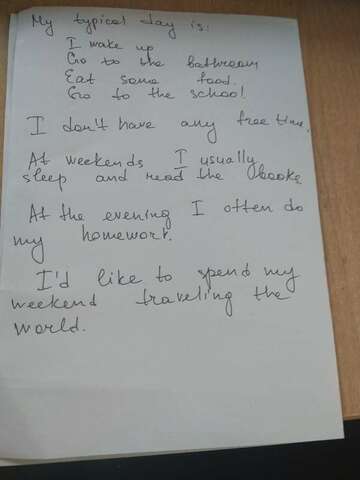 My typical day is:
I wake up
Go to the bathroom
Eat some food.
Go to the school.
I don't have any free time.
At weekends I usually
sleep and read the books.
At the evening I often do
my homework.
I'd like to spend my
weekend traveling the
world.